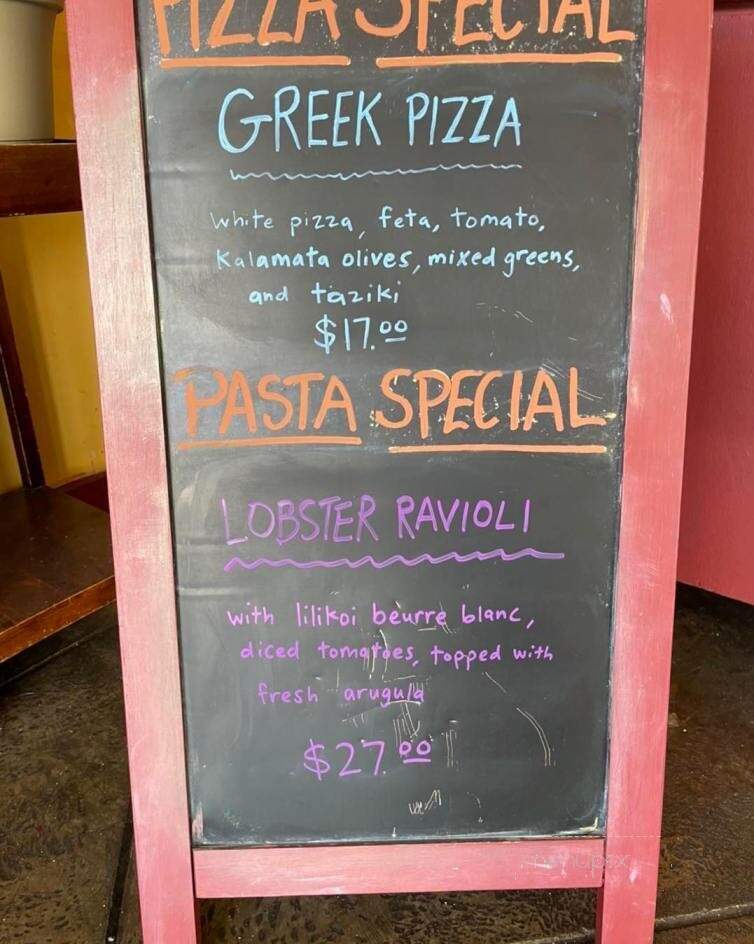 PIZZA SPECIAL
GREEK PIZZA
white pizza, feta, tomato,
Kalamata olives, mixed greens,
and taziki
$17.00
PASTA SPECIAL
LOBSTER RAVIOLI
with lilikoi beurre blanc,
diced tomatoes, topped with
fresh arugula
$27.00